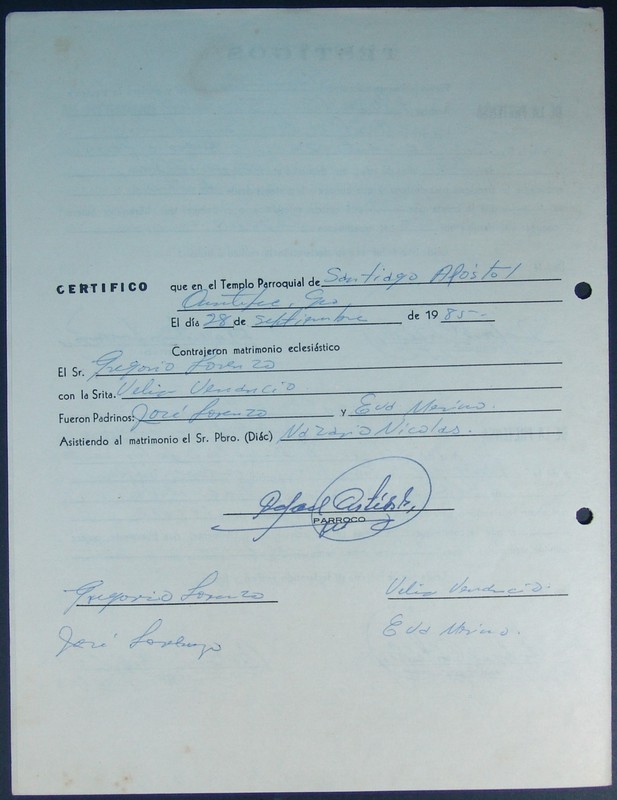 CERTIFICO que en el Templo Parroquial de Santiago Apóstol
Gro.
El día 28 de septiembre de 1985-
Contrajeron matrimonio eclesiástico
El Sr. Gregorio Lorenzo
con la Srita. Velia Venancio
Fueron Padrinos: José Lorenzo y Eva Merino.
Asistiendo al matrimonio el Sr. Pbro. (Diác) Nazario Nicolas.
Rafael
PARROCO
Gregorio Lorenzo Velia Venancio.
José Lorenzo Eva Merino.